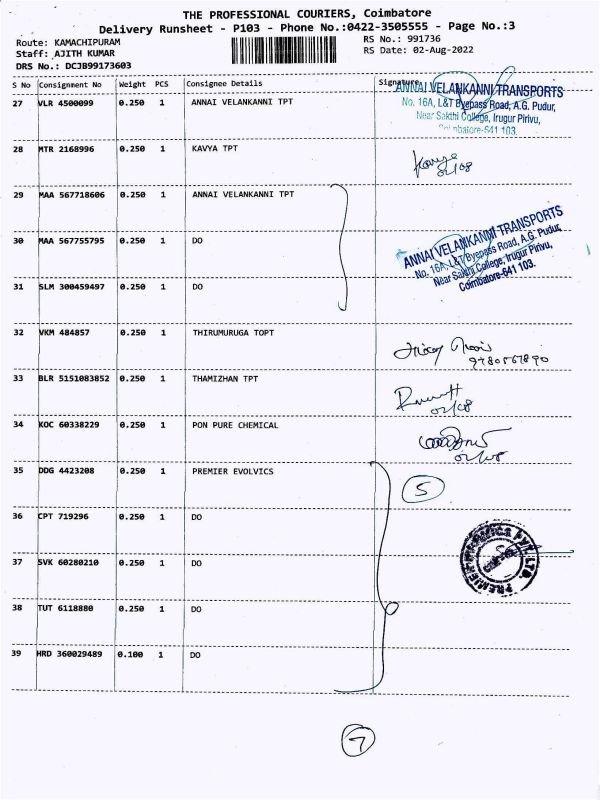 THE PROFESSIONAL COURIERS, Coimbatore
Delivery Runsheet - P103 - Phone No.:0422-3505555 - Page No.:3
Route: KAMACHIPURAM RS No.: 991736
Staff: AJITH KUMAR RS Date: 02-Aug-2022
DRS No.: DCJB99173603
S No Consignment No Weight PCS Consignee Details Signature
27 VLR 4500099 0.250 1 ANNAI VELANKANNI TPT
ANNAI VELANKANNI TRANSPORTS
No. 16A, L&T Byepass Road, A.G. Pudur,
Near Sakthi College, Irugur Pirivu,
Coimbatore-641 103
28 MTR 2168996 0.250 1 KAVYA TPT
Kavya
02/08
29 MAA 567718606 0.250 1 ANNAI VELANKANNI TPT
30 MAA 567755795 0.250 1 DO
ANNAI VELANKANNI TRANSPORTS
No. 16A, L&T Byepass Road, A.G. Pudur,
Near Sakthi College, Irugur Pirivu,
Coimbatore-641 103.
31 SLM 300459497 0.250 1 DO
32 VKM 484857 0.250 1 THIRUMURUGA TOPT
33 BLR 5151083852 0.250 1 THAMIZHAN TPT
02/08
34 KOC 60338229 0.250 1 PON PURE CHEMICAL
02/08
35 DDG 4423208 0.250 1 PREMIER EVOLVICS
5
36 CPT 719296 0.250 1 DO
37 SVK 60280210 0.250 1 DO
38 TUT 6118880 0.250 1 DO
39 HRD 360029489 0.100 1 DO
7